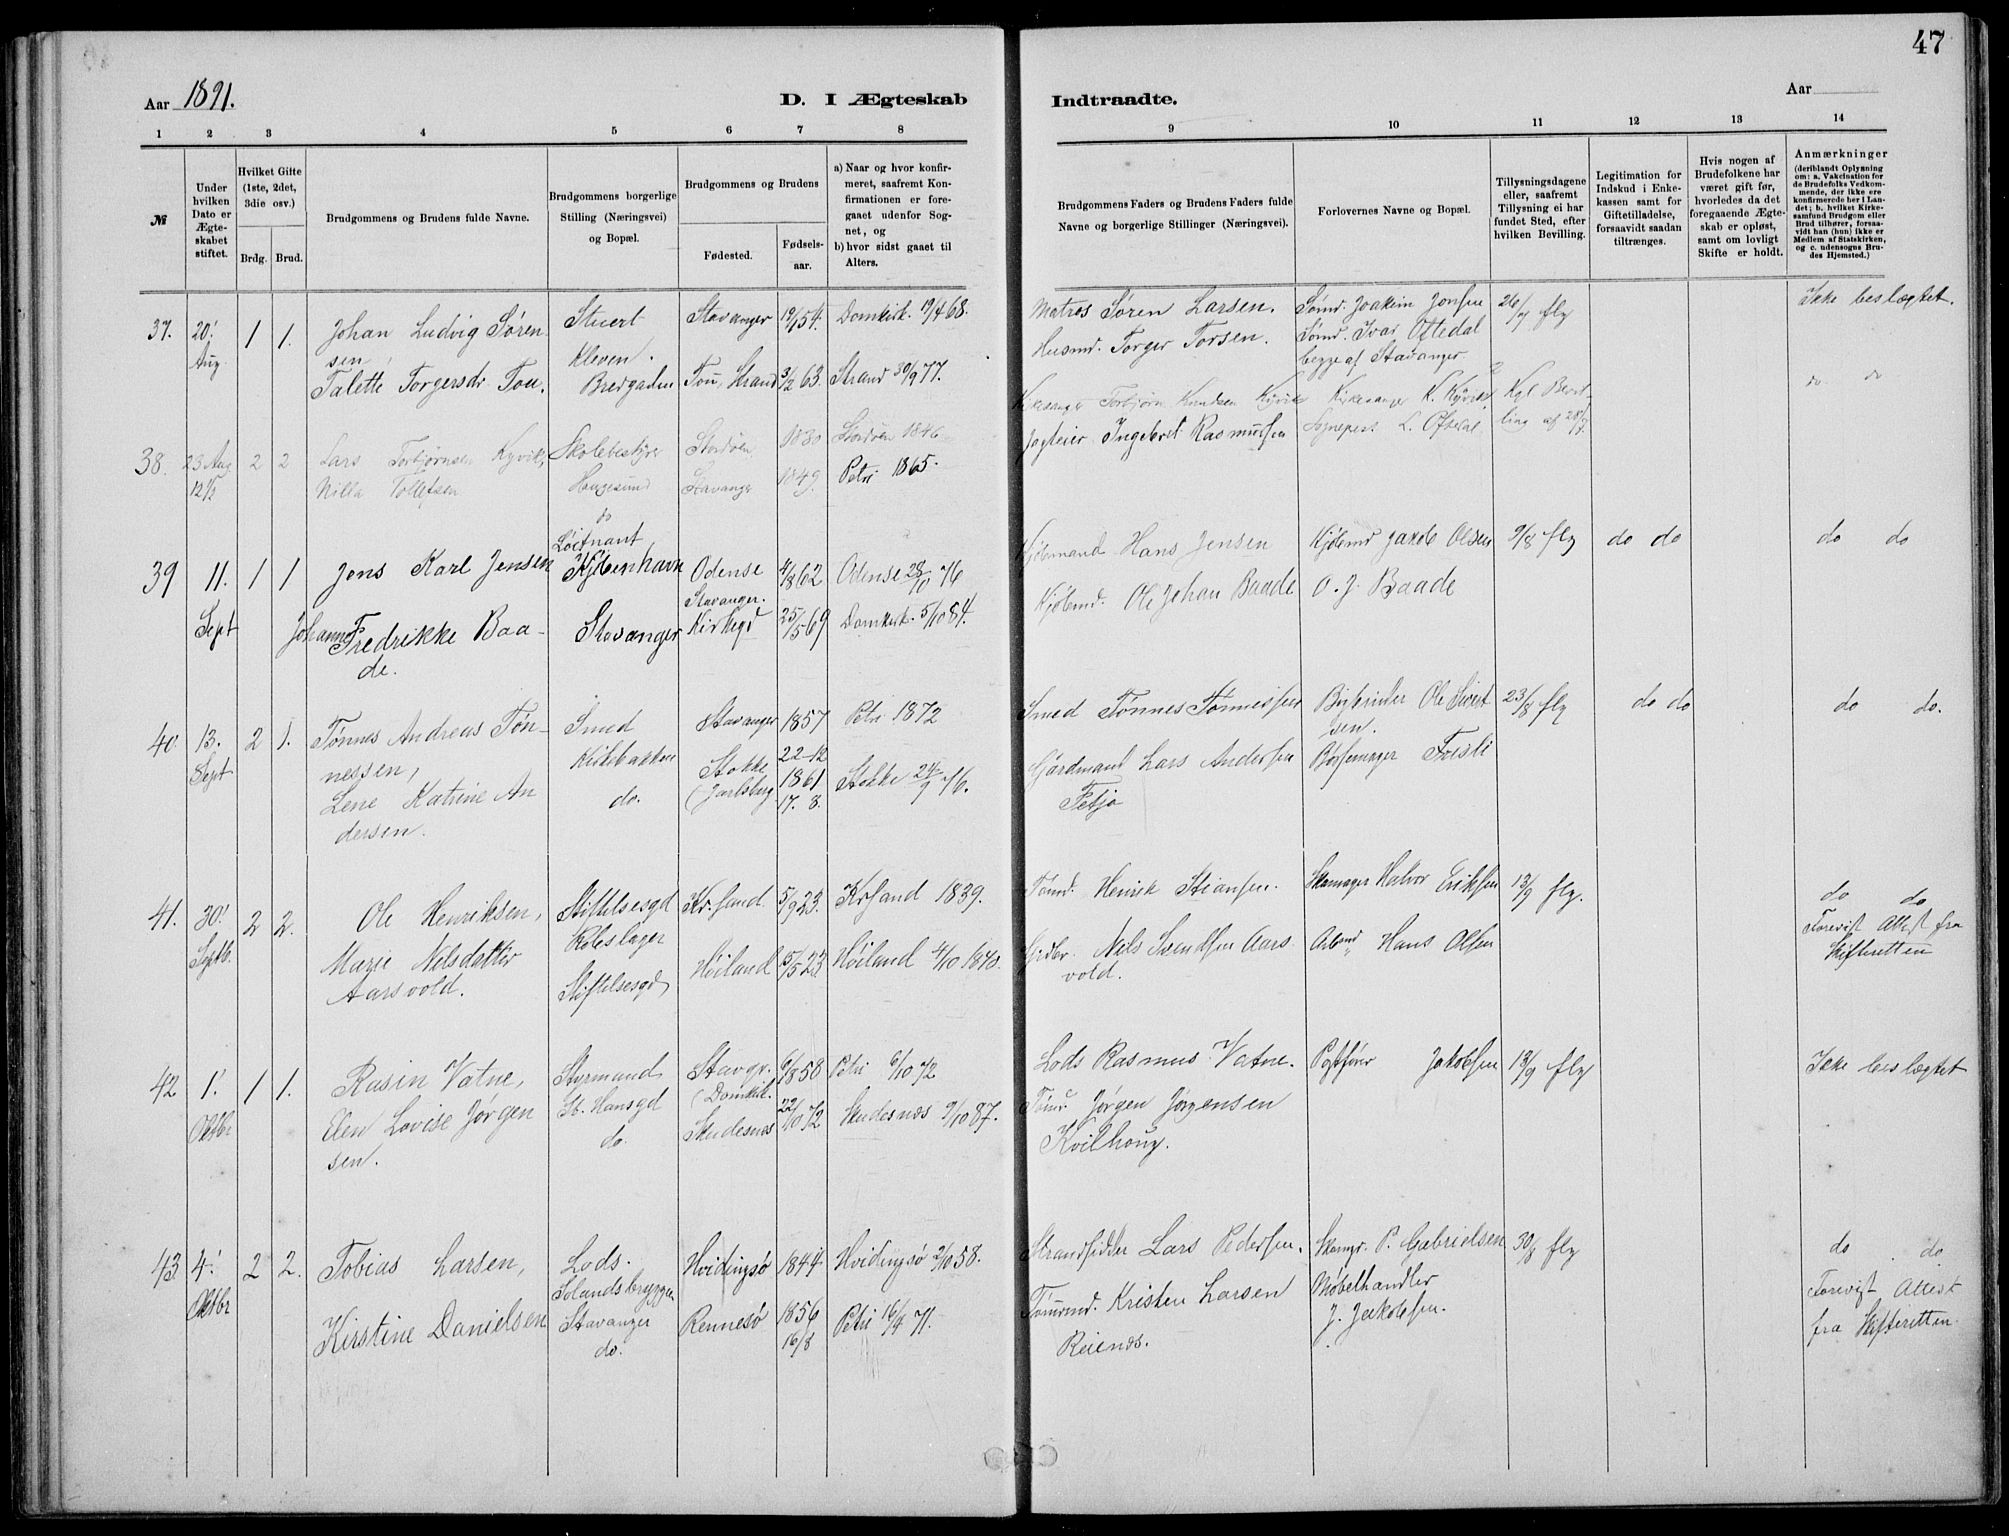 47
Aar 1891.
D. I Ægteskab
Indtraadte.
Aar
1 2 3 4 5 6 7 8
9 10 11 12 13 14
№
Under hvilken Dato er Ægteskabet stiftet.
Hvilket Gifte (1ste, 2det, 3die osv.)
Brdg. Brud.
Brudgommens og Brudens fulde Navne.
Brudgommens borgerlige Stilling (Næringsvei) og Bopæl.
Brudgommens og Brudens
Fødested.
Fødselsaar.
a) Naar og hvor konfirmeret, saafremt Konfirmationen er foregaaet udenfor Sognet, og
b) hvor sidst gaaet til Alters.
Brudgommens Faders og Brudens Faders fulde Navne og borgerlige Stillinger (Næringsvei).
Forlovernes Navne og Bopæl.
Tillysningsdagene eller, saafremt Tillysning ei har fundet Sted, efter hvilken Bevilling.
Legitimation for Indskud i Enkekassen samt for Giftetilladelse, forsaavidt saadan tiltrænges.
Hvis nogen af Brudefolkene har været gift før, hvorledes da det foregaaende Ægteskab er opløst, samt om lovligt Skifte er holdt.
Anmærkninger
(deriblandt Oplysning om: a. Vakcination for de Brudefolks Vedkommende, der ikke ere konfirmerede her i Landet; b. hvilket Kirkesamfund Brudgom eller Brud tilhører, forsaavidt han (hun) ikke er Medlem af Statskirken, og c. udensogns Brudes Hjemsted.)
37. 20' 1 1. Johan Ludvig Søren Stuert Stavanger 19/1 54. Domkirk. 19/4 68.
Aug sen, Kleven.
Talette Torgersdr Tou. Bredgaden Tou, Strand 3/2 63. Strand 30/9 77.
Matros Søren Larsen. Sømd. Joakim Jonsen 26/7 flg Ikke beslægtet.
Husmd. Torger Torsen. Sømd. Ivar Oftedal
begge af Stavanger
38. 23 Aug 2 2 Lars Torbjørnsen Kyvik, Skolebestyrer Stordøen 1830 Stordøen 1846
12 1/2 Nilla Tollefsen Haugesund Stavanger 1849. Petri 1865.
do
Kirkesanger Torbjørn Knudsen Kyvik Kirkesanger K. Kyvik, Kgl Bevil- do do
Ingebret Rasmussen Sognepræst L. Oftedal ling af 28/7
39 11. 1 1 Jens Karl Jensen Løitnant Kjøbenhavn Odense 4/8 62 Odense 28/11 76
Sept Johanne Fredrikke Baa- Stavanger Stavanger. Kirkegd 25/5 69 Domkirk. 5/10 84.
de.
Kjøbmand Hans Jensen Kjøbmd Jakob Olsen 9/8 flg do do do do
Kjøbmd. Ole Johan Baade O. J. Baade
40. 13. 2 1. Tønnes Andreas Tøn- Smed Stavanger 1857 Petri 1872
Sept nessen, Kirkebakken 22-12
Lene Katrine An do. Stokke 1861 Stokke 24/9 76.
dersen. (Jarlsberg 17. 8.
Smed Tønnes Tønnessen Ole Sivert 23/8 flg do do do do.
sen.
Gårdmand Lars Andersen Bøssemager
41. 30' 2 2. Ole Henriksen, Stiftelsesgd Kr.sand 5/9 23. Krsand 1839.
Septb. Marie Nelsdatter Rebslager Høiland 5/5 23 Høiland 4/10 1840.
Aarsvold. Stiftelsesgd
Tømd. Henrik Stiansen. Skomager Halvor Eriksen 13/9 flg. do do
Nels Svendsen Aars- Arbmd Hans Olsen Forevist Attest fra
vold. Skifteretten
42 1' 1 1. Rasin Vatne, Styrmand Stavgr. 6/1 858 Petri 6/10 72
Oktbr Elen Lovise Jørgen St. Hansgd (Domkirk.
sen. do. Skudesnæs 22/10 72 Skudesnæs 9/10 87.
Lods Rasmus Vatne. Jakobsen 13/9 flg Ikke beslægtet
Tømd. Jørgen Jørgensen
Kvilhoug.
43 4' 2 2. Tobias Larsen, Lods. Hvidingsø 1844 Hvidingsø 2/10 58.
Oktbr Sølandsbryggen
Kirstine Danielsen Stavanger Rennesø 1856 Petri 16/4 71.
do. 16/8
Strandsidder Lars Pedersen. Skomgr. P. Gabrielsen 30/8 flg do do
Tømmd. Kristen Larsen Møbelhandler Forevist Attest
Reienæs. J. Jakobsen. fra Skifteretten